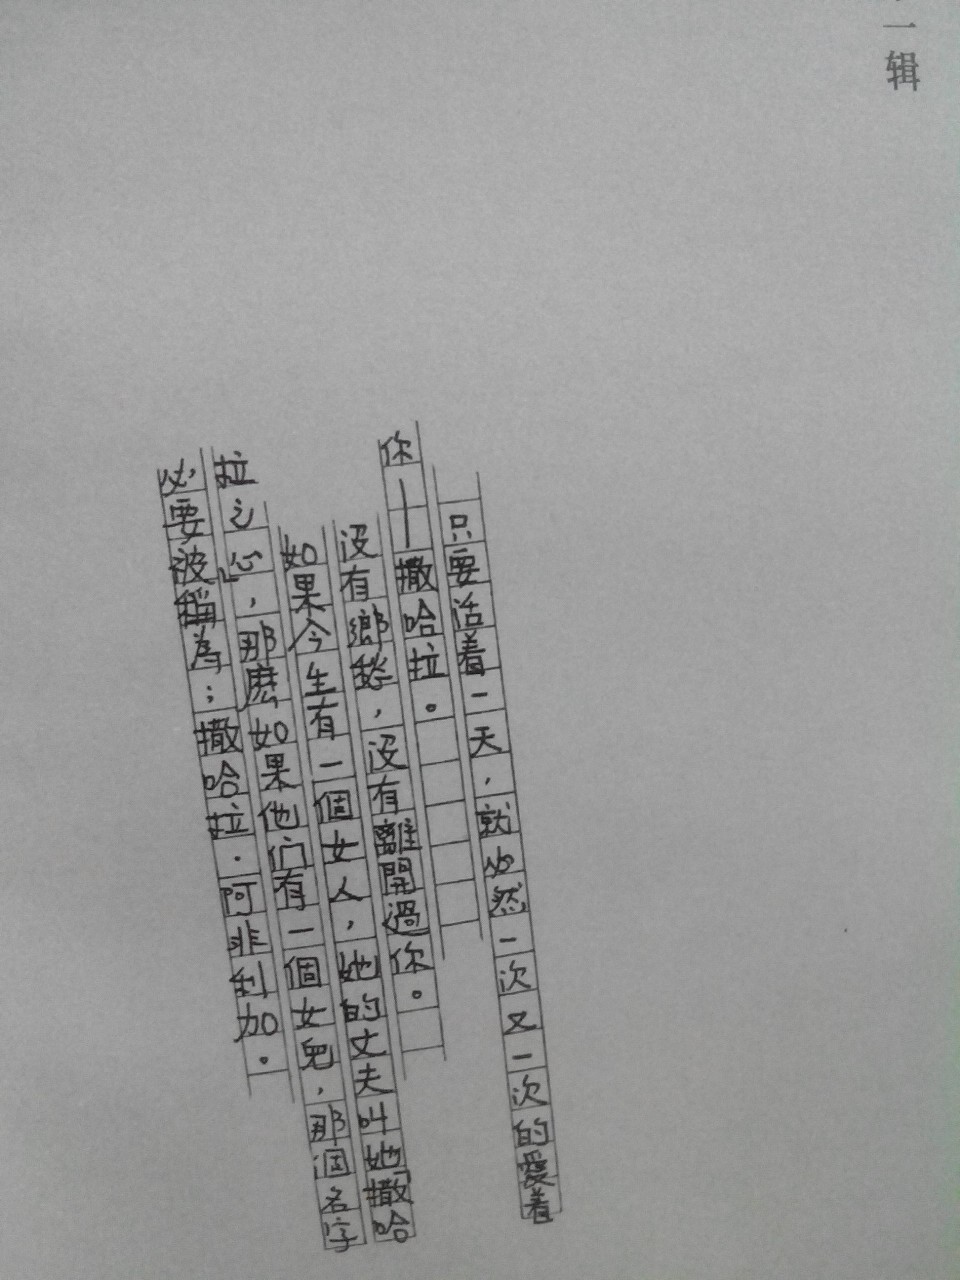 一辑
只要活着一天，就必然一次又一次的愛着
你——撒哈拉。
没有鄉愁，没有離開過你。
如果今生有一個女人，她的丈夫叫她「撒哈
拉之心」，那麽如果他們有一個女兒，那個名字
必要被稱為：撒哈拉·阿非利加。